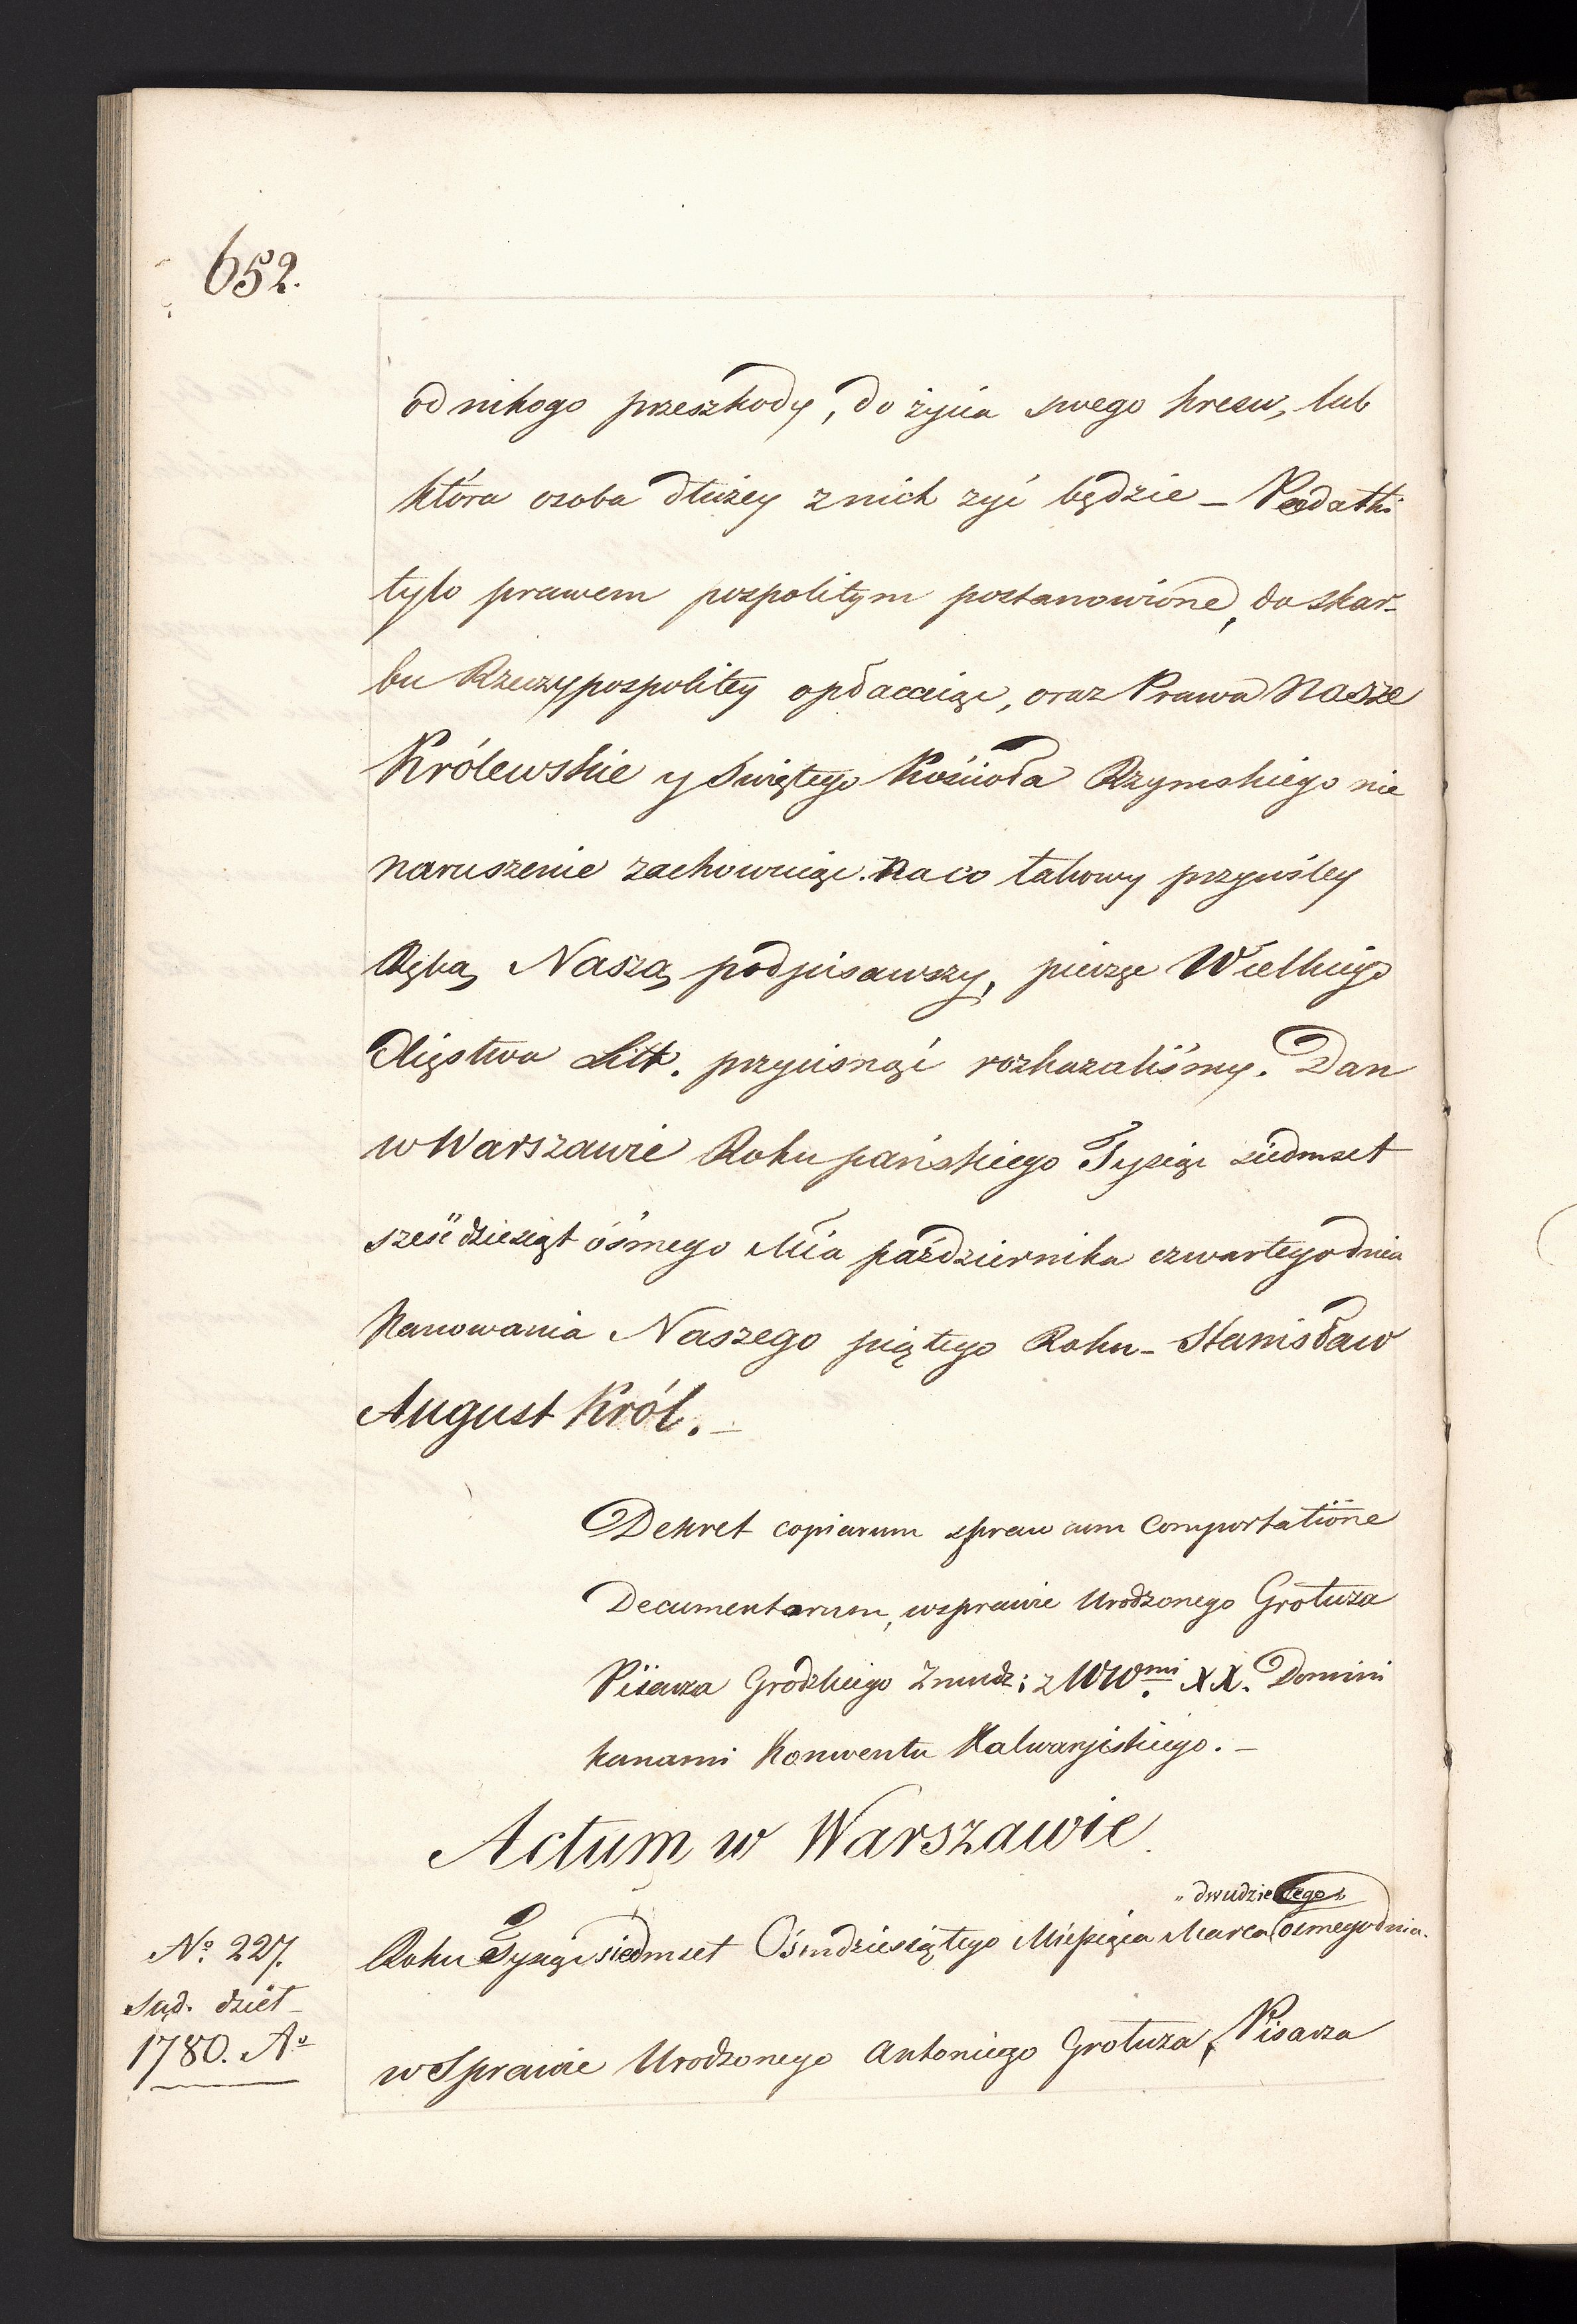 652.
od nikogo przeszkody, do życia swego kresu, lub
która osoba dłużey z nich żyć będzie – Podatki
tylo prawem pospolitym postanowione, do skar-
bu Rzeczypospolitey opłacaiąc, oraz Prawa Nasze
Królewskie y Swiętego Kościoła Rzymskiego nie
naruszenie zachowuiąc. Na co takowy przywiley
Ręką Naszą podpisawszy, pieczęć Wielkiego
Xięstwa Litt. przycisnąć rozkazaliśmy. Dan
w Warszawie Roku pańskiego Tysiąc siedmset
sześćdziesiąt ósmego Mia października czwartego dnia
Panowania Naszego piątego Roku – Stanisław
August Król. –
Dekret copiarum spraw cum Comportatione
Documentorum, w sprawie Urodzonego Grotuza
Pisarza Grodzkiego Żmudz: z WW.mi XX. Domini
kanami Konwentu Kalwaryiskiego. –
Actum w Warszawie.
„ dwudziestego
Roku Tysiąc siedmset Ośmdziesiątego Miesiąca Marca ósmego dnia.
No. 227.
Sąd. dzieł
1780. Ao
w Sprawie Urodzonego Antoniego Grotuza, Pisarza